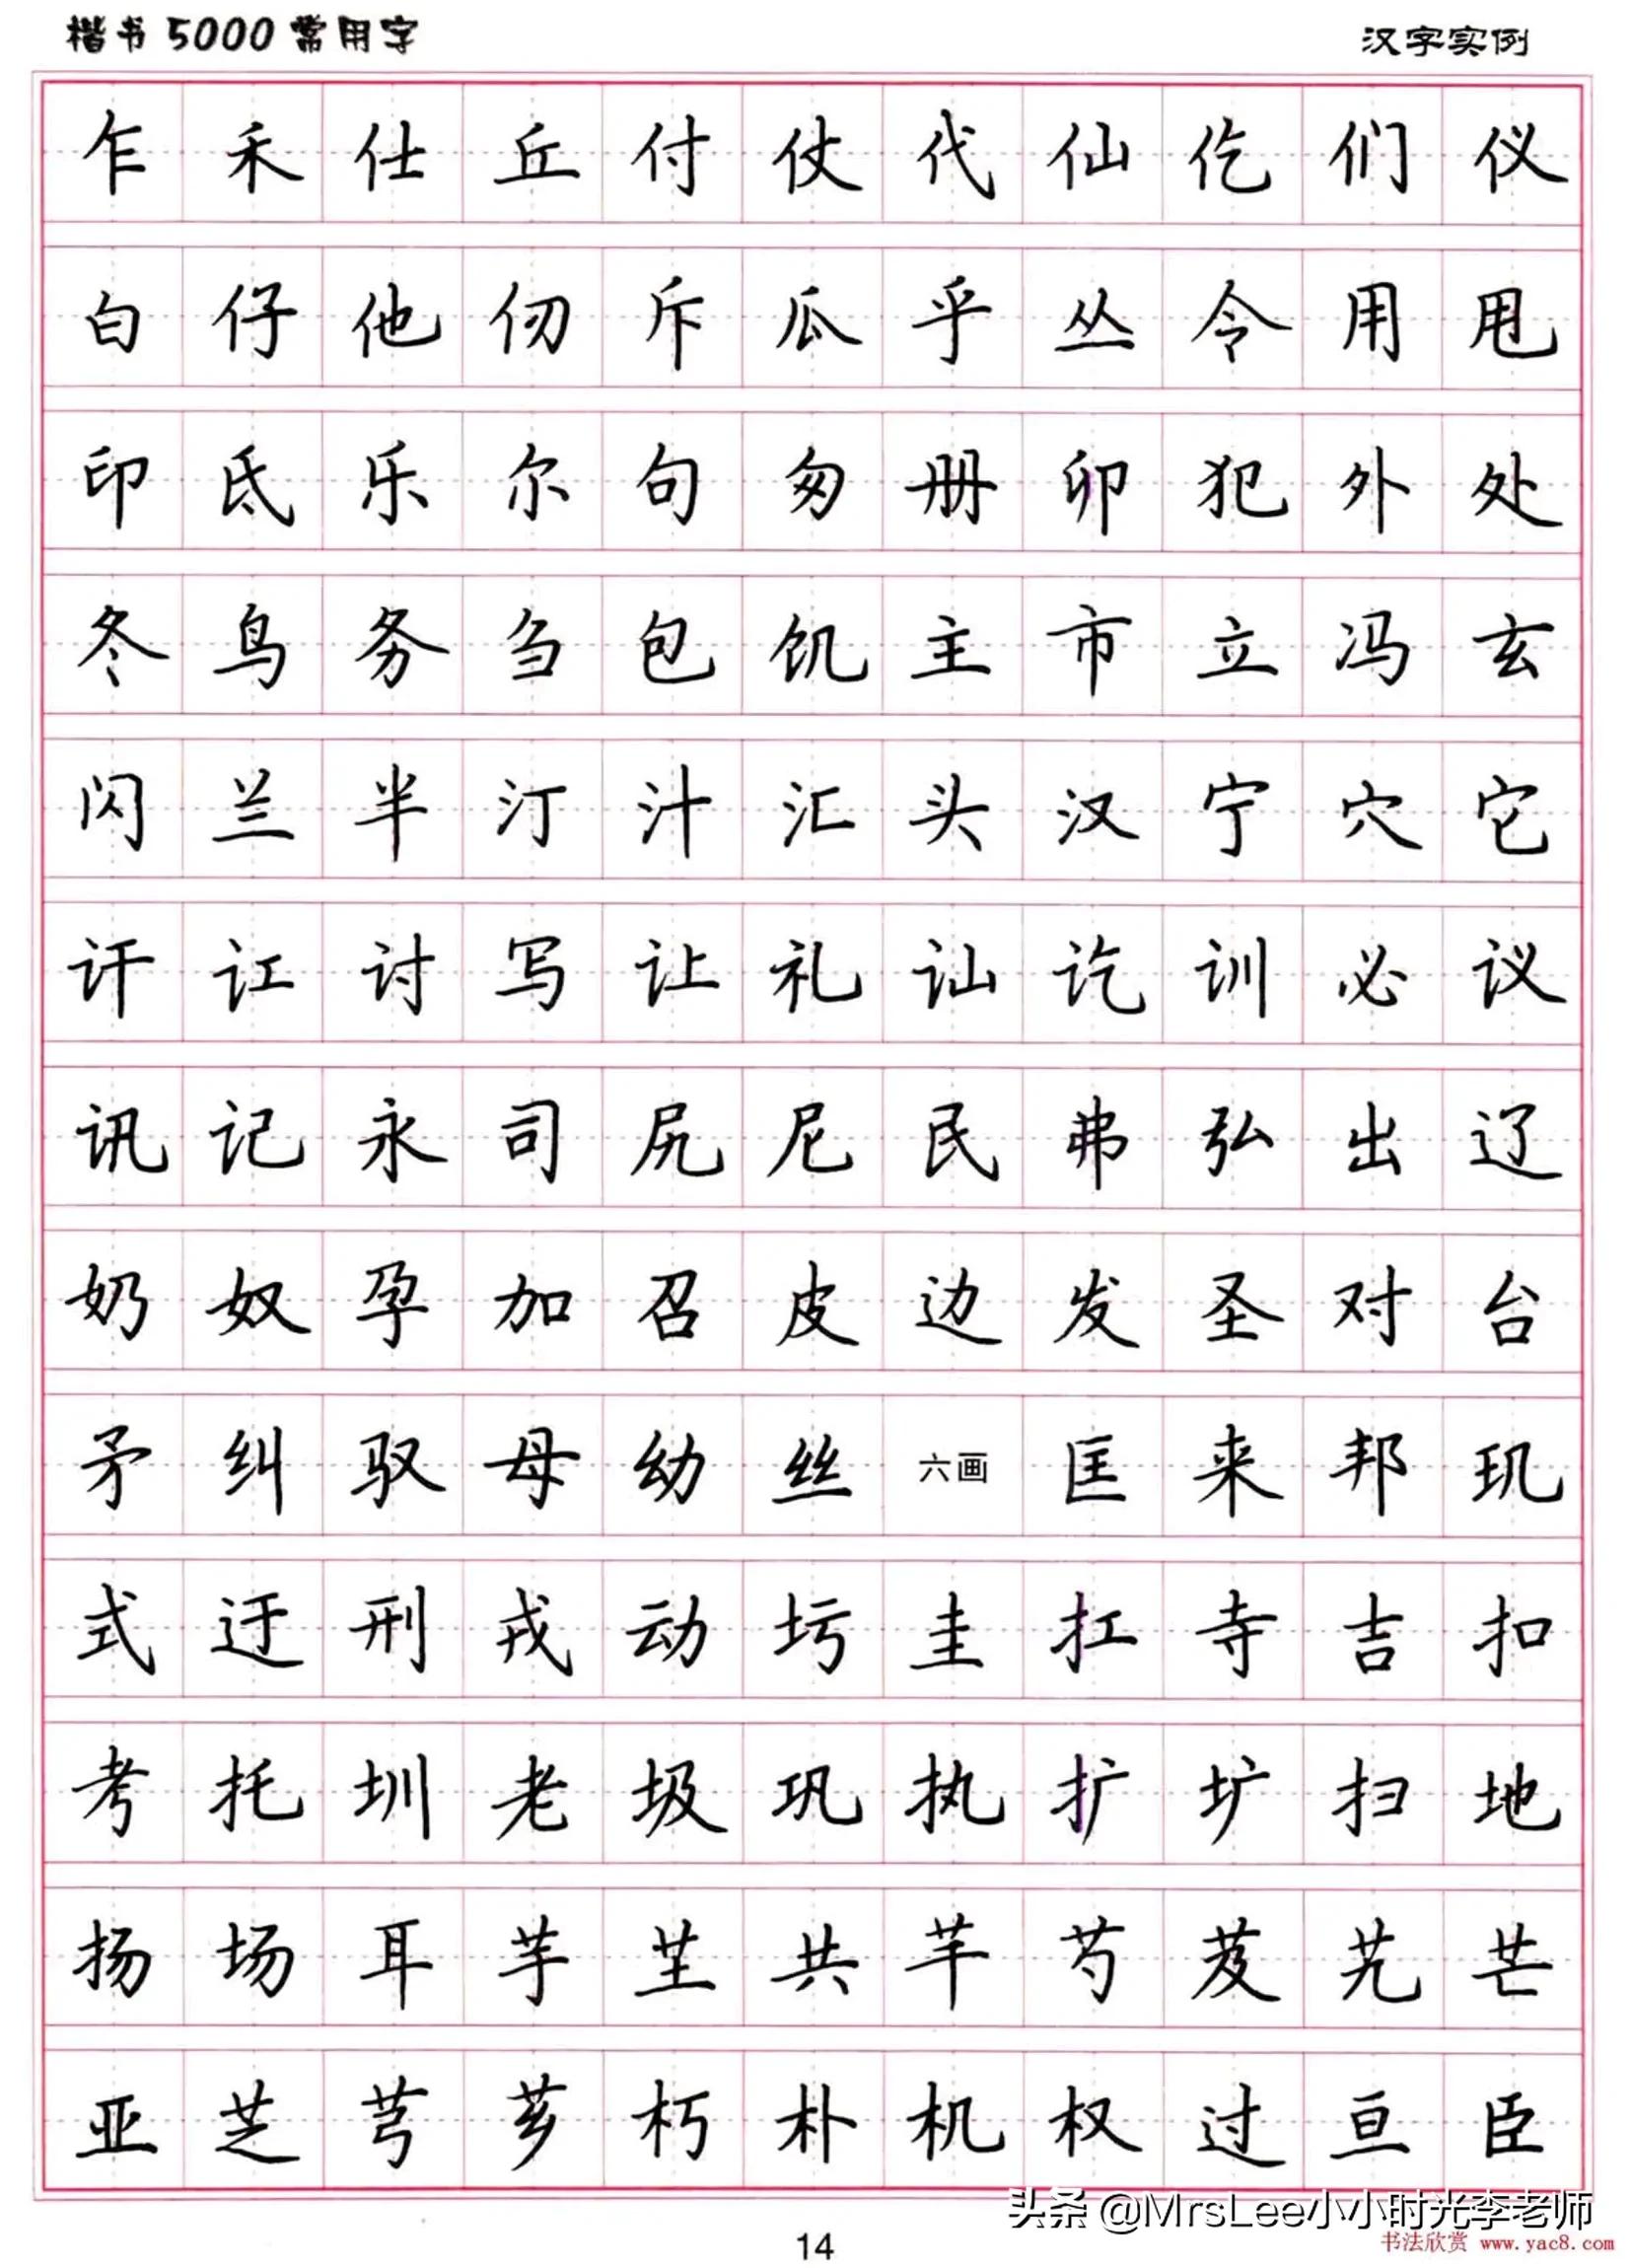 楷书5000常用字 汉字实例
乍 禾 仕 丘 付 仗 代 仙 仡 们 仪
白 仔 他 仞 斥 瓜 乎 丛 令 用 甩
印 氐 乐 尔 句 匆 册 卯 犯 外 处
冬 鸟 务 刍 包 饥 主 市 立 冯 玄
闪 兰 半 汀 汁 汇 头 汉 宁 穴 它
讦 讧 讨 写 让 礼 讪 讫 训 必 议
讯 记 永 司 尻 尼 民 弗 弘 出 辽
奶 奴 孕 加 召 皮 边 发 圣 对 台
矛 纠 驭 母 幼 丝 六画 匡 来 邦 玑
式 迂 刑 戎 动 圬 圭 扛 寺 吉 扣
考 托 圳 老 圾 巩 执 扩 圹 扫 地
扬 场 耳 芋 芏 共 芊 芍 芨 艽 芒
亚 芝 芎 芗 朽 朴 机 权 过 亘 臣
头条 @MrsLee小小时光李老师
书法欣赏 www.yac8.com
14